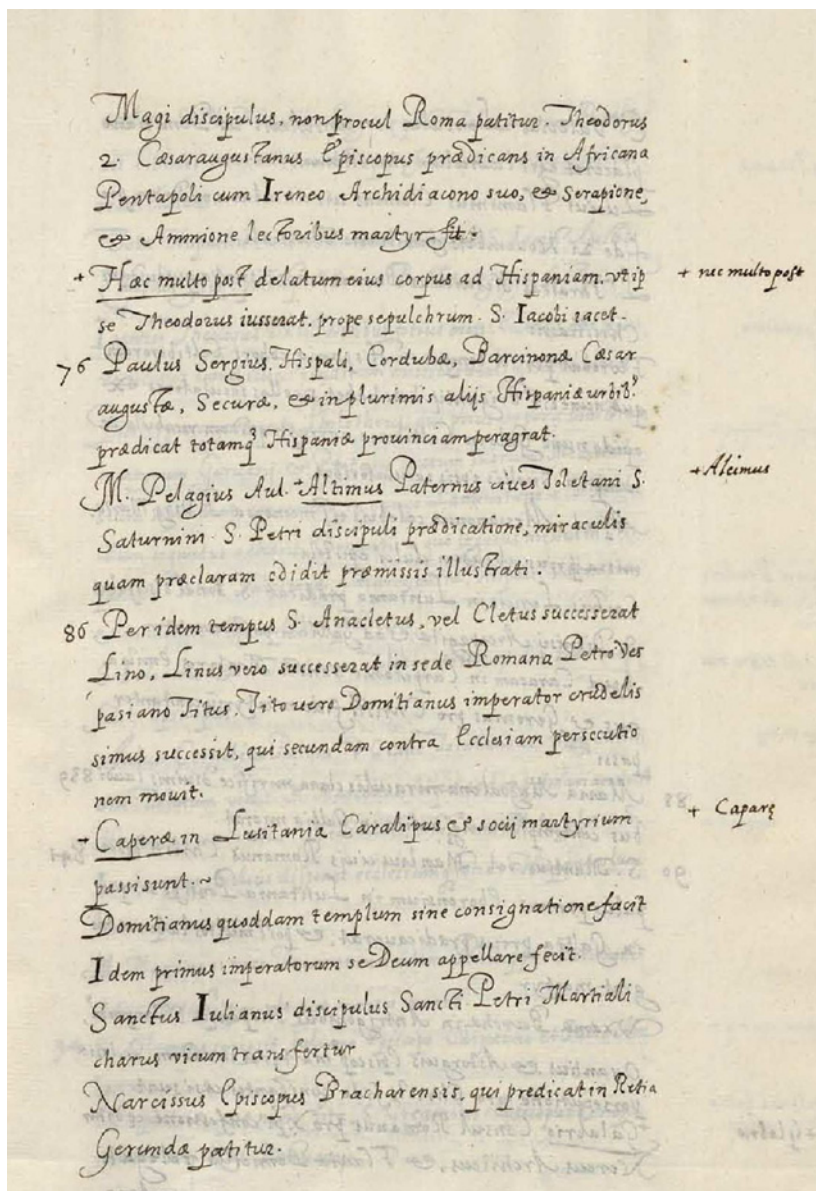 Magi discipulus, non procul Roma patitur. Theodorus
2. Cæsaraugustanus Episcopus prædicans in Africana
Pentapoli cum Ireneo Archidiacono suo, & Serapione,
& Ammione lectoribus martyr fit.
+ Hæc multo post delatum eius corpus ad Hispaniam, vt ip + nec multo post
se Theodorus iusserat, prope sepulchrum. S. Iacobi iacet.
76 Paulus Sergius, Hispali, Cordubæ, Barcinonæ Cæsar
augustæ, Securæ, & in plurimis alijs Hispaniæ urbib9
prædicat totamq3 Hispaniæ prouinciam peragrat.
M. Pelagius Aul. + Altimus Paternus ciues Toletani S. + Alcimus
Saturnini. S. Petri discipuli prædicatione, miraculis
quam præclaram edidit præmissis illustrati.
86 Per idem tempus S. Anacletus, vel Cletus successerat
Lino, Linus vero successerat in sede Romana Petro Ves
pasiano Titus, Tito uero Domitianus imperator crudelis
simus successit, qui secundam contra Ecclesiam persecutio
nem mouit.
+ Caperæ in Lusitania Caralipus & socij martyrium + Caparę
passi sunt. ~
Domitianus quoddam templum sine consignatione facit
Idem primus imperatorum se Deum appellare fecit.
Sanctus Iulianus discipulus Sancti Petri Martiali
charus vicum transfertur
Narcissus Episcopus Bracharensis, qui predicat in Retia
Gerundæ patitur.